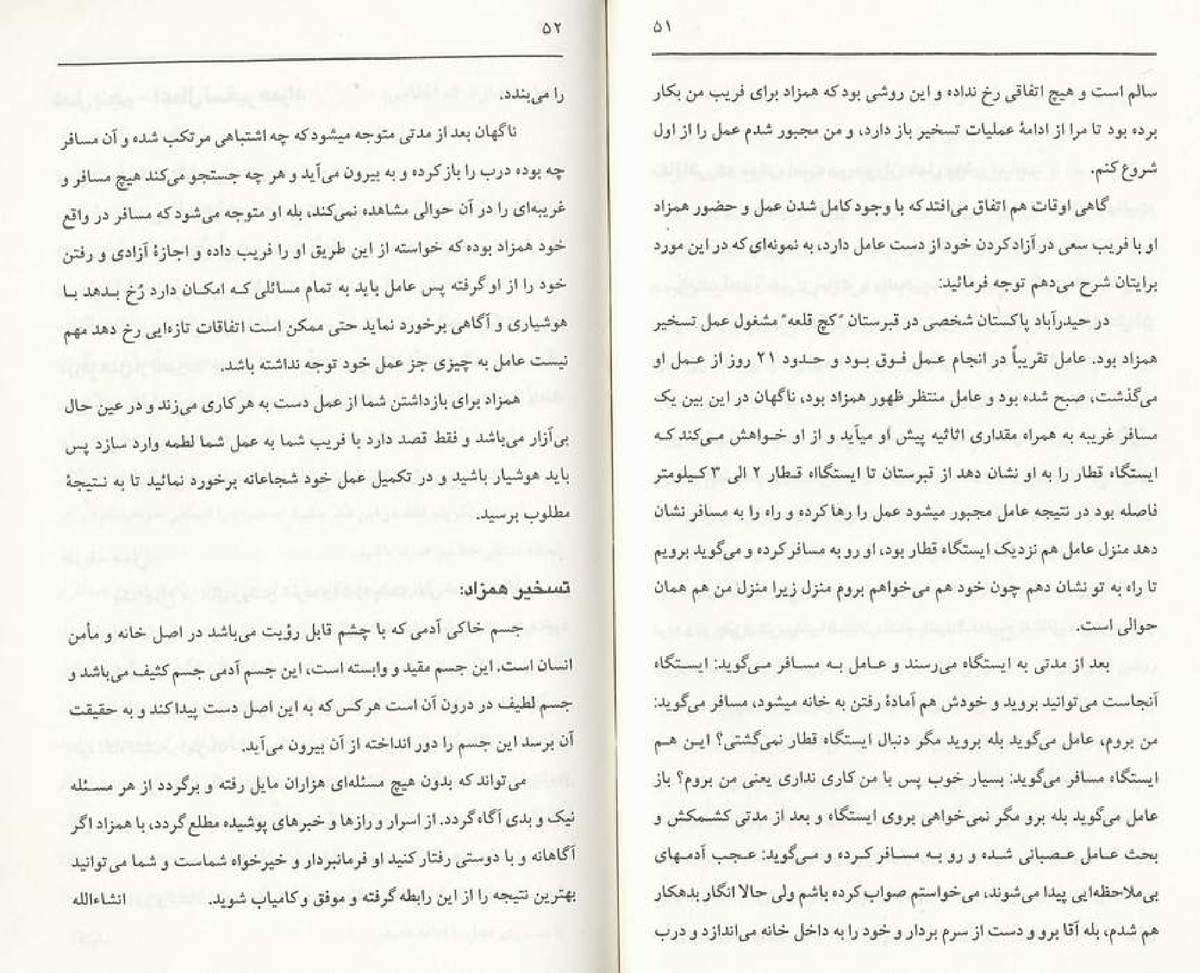 ۵۱
سالم است و هیچ اتفاقی رخ نداده و این روشی بود که همزاد برای فریب من بکار
برده بود تا مرا از ادامهٔ عملیات تسخیر باز دارد، و من مجبور شدم عمل را از اول
شروع کنم.
گاهی اوقات هم اتفاق می‌افتد که با وجود کامل شدن عمل و حضور همزاد
او با فریب سعی در آزاد کردن خود از دست عامل دارد، به نمونه‌ای که در این مورد
برایتان شرح می‌دهم توجه فرمائید:
در حیدرآباد پاکستان شخصی در قبرستان "کچ قلعه" مشغول عمل تسخیر
همزاد بود. عامل تقریباً در انجام عمل فوق بود و حدود ۲۱ روز از عمل او
می‌گذشت، صبح شده بود و عامل منتظر ظهور همزاد بود، ناگهان در این بین یک
مسافر غریبه به همراه مقداری اثاثیه پیش او میآید و از او خواهش می‌کند که
ایستگاه قطار را به او نشان دهد از قبرستان تا ایستگااه قطار ۲ الی ۳ کیلومتر
فاصله بود در نتیجه عامل مجبور میشود عمل را رها کرده و راه را به مسافر نشان
دهد منزل عامل هم نزدیک ایستگاه قطار بود، او رو به مسافر کرده و می‌گوید برویم
تا راه به تو نشان دهم چون خود هم می‌خواهم بروم منزل زیرا منزل من هم همان
حوالی است.
بعد از مدتی به ایستگاه می‌رسند و عامل به مسافر می‌گوید: ایستگاه
آنجاست می‌توانید بروید و خودش هم آمادهٔ رفتن به خانه میشود، مسافر می‌گوید:
من بروم، عامل می‌گوید بله بروید مگر دنبال ایستگاه قطار نمی‌گشتی؟ این هم
ایستگاه مسافر می‌گوید: بسیار خوب پس با من کاری نداری یعنی من بروم؟ باز
عامل می‌گوید بله برو مگر نمی‌خواهی بروی ایستگاه و بعد از مدتی کشمکش و
بحث عامل عصبانی شده و رو به مسافر کرده و می‌گوید: عجب آدمهای
بی‌ملاحظه‌ایی پیدا می‌شوند، می‌خواستم صواب کرده باشم ولی حالا انگار بدهکار
هم شدم، بله آقا برو و دست از سرم بردار و خود را به داخل خانه می‌اندازد و درب
۵۲
را می‌بندد.
ناگهان بعد از مدتی متوجه میشود که چه اشتباهی مرتکب شده و آن مسافر
چه بوده درب را باز کرده و به بیرون می‌آید و هر چه جستجو می‌کند هیچ مسافر و
غریبه‌ای را در آن حوالی مشاهده نمی‌کند، بله او متوجه می‌شود که مسافر در واقع
خود همزاد بوده که خواسته از این طریق او را فریب داده و اجازهٔ آزادی و رفتن
خود را از او گرفته پس عامل باید به تمام مسائلی که امکان دارد رُخ بدهد با
هوشیاری و آگاهی برخورد نماید حتی ممکن است اتفاقات تازه‌ایی رخ دهد مهم
نیست عامل به چیزی جز عمل خود توجه نداشته باشد.
همزاد برای بازداشتن شما از عمل دست به هر کاری می‌زند و در عین حال
بی‌آزار می‌باشد و فقط قصد دارد با فریب شما به عمل شما لطمه وارد سازد پس
باید هوشیار باشید و در تکمیل عمل خود شجاعانه برخورد نمائید تا به نتیجهٔ
مطلوب برسید.
تسخیر همزاد:
جسم خاکی آدمی که با چشم قابل رؤیت می‌باشد در اصل خانه و مأمن
انسان است. این جسم مقید و وابسته است، این جسم آدمی جسم کثیف می‌باشد و
جسم لطیف در درون آن است هر کس که به این اصل دست پیدا کند و به حقیقت
آن برسد این جسم را دور انداخته از آن بیرون می‌آید.
می‌تواند که بدون هیچ مسئله‌ای هزاران مایل رفته و برگردد از هر مسئله
نیک و بدی آگاه گردد. از اسرار و رازها و خبرهای پوشیده مطلع گردد، با همزاد اگر
آگاهانه و با دوستی رفتار کنید او فرمانبردار و خیرخواه شماست و شما می‌توانید
بهترین نتیجه را از این رابطه گرفته و موفق و کامیاب شوید. انشاءالله